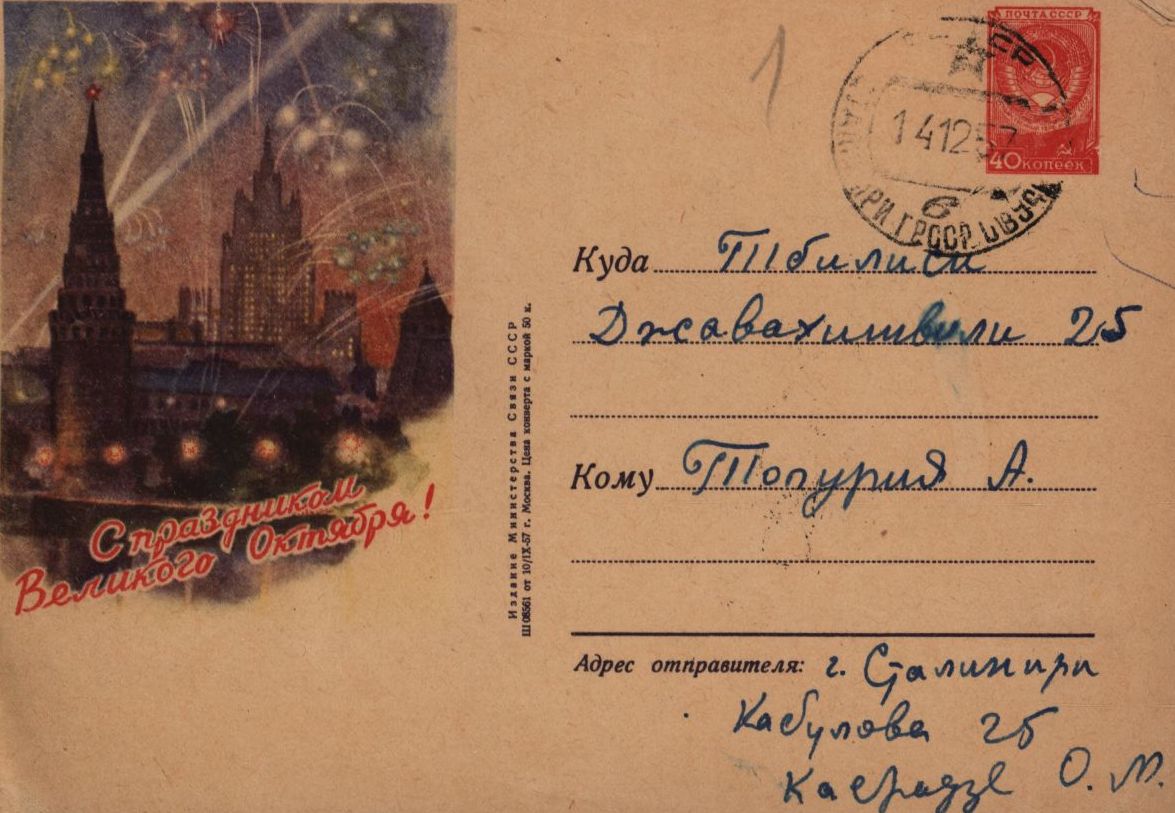 С праздником
Великого Октября!
Издание Министерства Связи СССР
Ш 08561 от 10/IX-57 г. Москва. Цена конверта с маркой 50 к.
ПОЧТА СССР
40 копеек
1
14 12 57
в
Куда Тбилиси
Джавахишвили 25
Кому Топурия А.
Адрес отправителя: г. Сталинири
Кабулова 25
О. М.